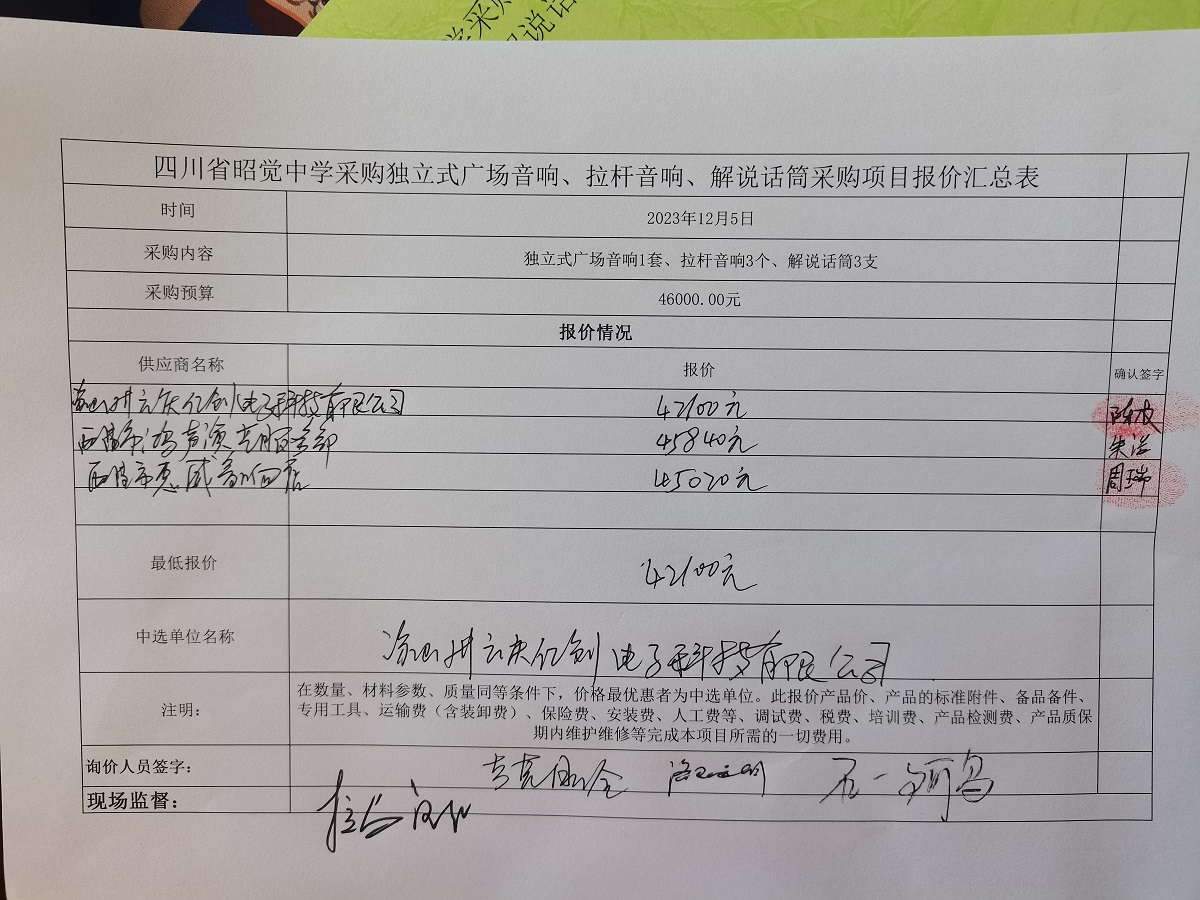 学采购
解说话
四川省昭觉中学采购独立式广场音响、拉杆音响、解说话筒采购项目报价汇总表
时间 2023年12月5日
采购内容 独立式广场音响1套、拉杆音响3个、解说话筒3支
采购预算 46000.00元
报价情况
供应商名称 报价 确认签字
亿创电子科技有限公司 42100元
西昌市 45840元 朱
西昌市惠威音响店 45020元 周瑞
最低报价 42100元
中选单位名称 亿创电子科技有限公司
注明: 在数量、材料参数、质量同等条件下，价格最优惠者为中选单位。此报价产品价、产品的标准附件、备品备件、
专用工具、运输费（含装卸费）、保险费、安装费、人工费等、调试费、税费、培训费、产品检测费、产品质保
期内维护维修等完成本项目所需的一切费用。
询价人员签字:
现场监督: